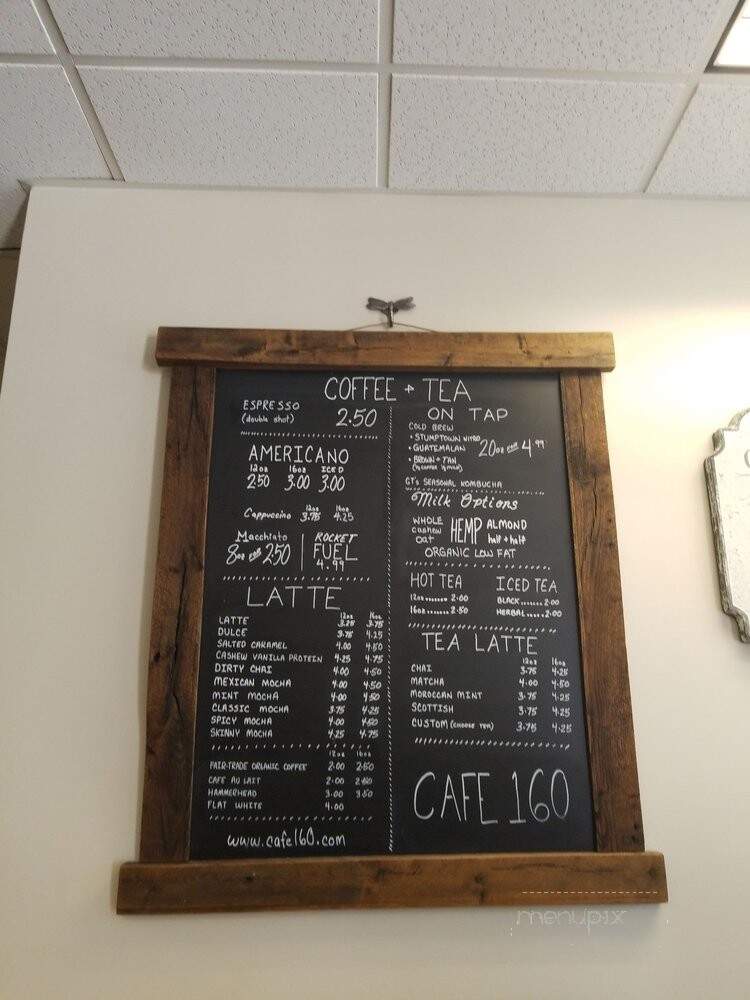 COFFEE + TEA
ESPRESSO
(double shot) 2.50
AMERICANO
12oz 16oz ICED
2.50 3.00 3.00
12oz 16oz
Cappuccino 3.75 4.25
Macchiato
8oz 2.50
ROCKET
FUEL
4.99
LATTE
12oz 16oz
LATTE 3.25 3.75
DULCE 3.75 4.25
SALTED CARAMEL 4.00 4.50
CASHEW VANILLA PROTEIN 4.25 4.75
DIRTY CHAI 4.00 4.50
MEXICAN MOCHA 4.00 4.50
MINT MOCHA 4.00 4.50
CLASSIC MOCHA 3.75 4.25
SPICY MOCHA 4.00 4.50
SKINNY MOCHA 4.25 4.75
12oz 16oz
FAIR-TRADE ORGANIC COFFEE 2.00 2.50
CAFE AU LAIT 2.00 2.50
HAMMERHEAD 3.00 3.50
FLAT WHITE 4.00
www.cafe160.com
ON TAP
COLD BREW
• STUMPTOWN NITRO
• GUATEMALAN 20oz 4.99
• BROWN + TAN
GT's SEASONAL KOMBUCHA
Milk Options
WHOLE HEMP ALMOND
cashew half + half
oat
ORGANIC LOW FAT
HOT TEA
12oz....... 2.00
16oz....... 2.50
ICED TEA
BLACK...... 2.00
HERBAL..... 2.00
TEA LATTE
12oz 16oz
CHAI 3.75 4.25
MATCHA 4.00 4.50
MOROCCAN MINT 3.75 4.25
SCOTTISH 3.75 4.25
CUSTOM (CHOOSE TEA) 3.75 4.25
CAFE 160
menupix